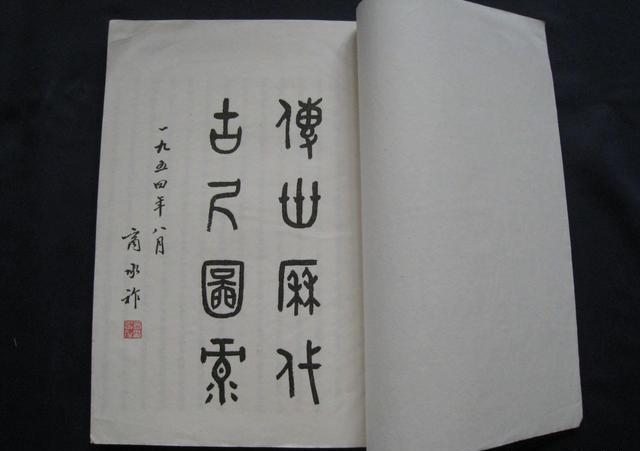 傳世厤代
古尺圖彔
一九五四年八月
商承祚